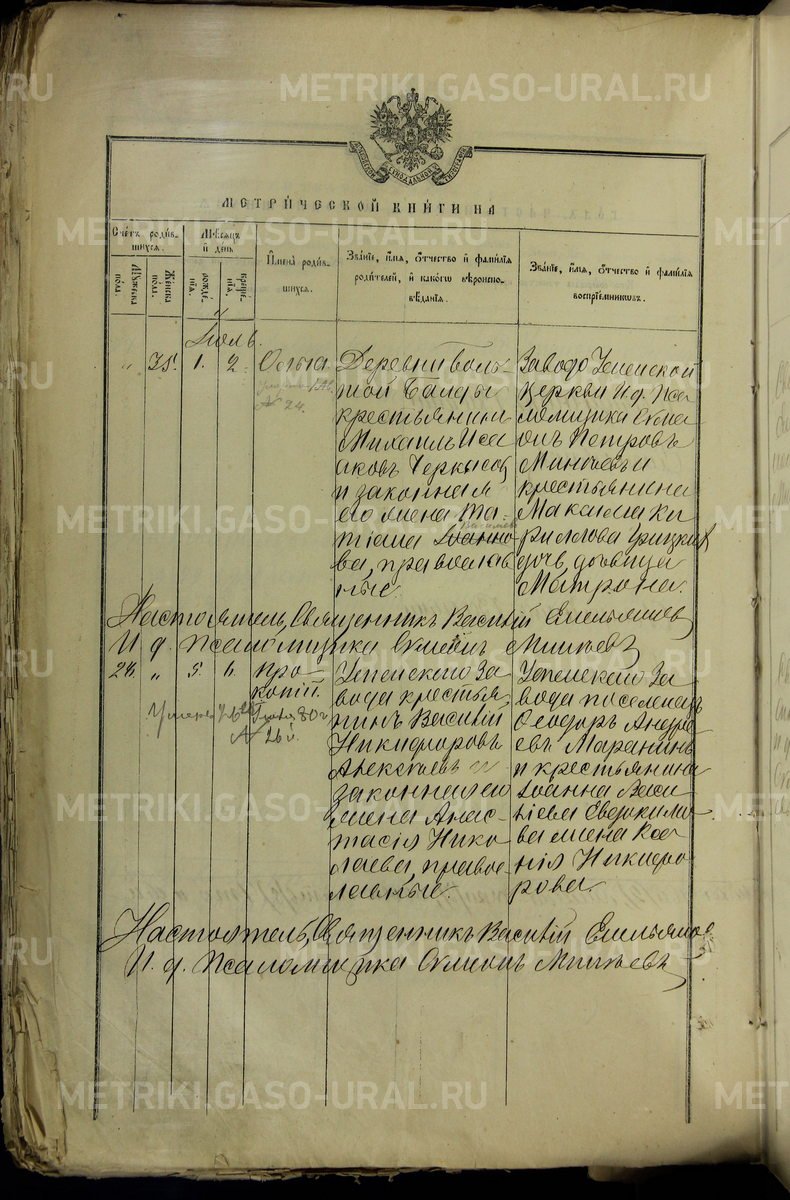 METRIKI.GASO-URAL.RU
МЕТРИ́ЧЕСКОЙ КНИ́ГИ НА
Сче́тъ роди́вшихся.
Му́жеска по́ла.
Же́нска по́ла.
Мѣ́сяцъ и день
рожде́нїя.
креще́нїя.
И҆мена̀ роди́вшихся.
Зва́нїе, и҆́мя, ѻ҆́тчество и҆ фами́лїя роди́телей, и҆ како́гѡ вѣроисповѣ́данїя.
Зва́нїе, и҆́мя, ѻ҆́тчество и҆ фами́лїя воспрїе́мниковъ.
Іюль.
" 35. 1. 2. Ольга
№ 24.
Деревни Боль-
шой Балды
крестьянинъ
Михаилъ Иса
аковъ Черкасовъ
и законная
его жена Та-
тіана Іоанно
ва, православ
ные.
Завода Успенской
церкви И. д. Пса
ломщика Симе
онъ Петровъ
Минѣевъ и
крестьянина
Максима Ки
риллова Урицкихъ
дочь, дѣвица
Матрона.
Настоятель, Священникъ Василій Емельяновъ
И. д. Псаломщика Симеонъ Минѣевъ
28. " 5. 6. Про
копій.
Умеръ 26го Іюля 80 г.
№ 26 й.
Успенскаго За
вода крестья
нинъ Василій
Никифоровъ
Алексѣевъ и
законная его
жена Анас-
тасія Нико
лаева, правос-
лавные.
Успенскаго За
вода поселенецъ
Ѳеодоръ Андре
евъ Маранинъ
и крестьянина
Іоанна Васи
ліева
жена Ксе-
нія Никифо
рова.
Настоятель, Священникъ Василій Емельяновъ
И. д. Псаломщика Симеонъ Минѣевъ